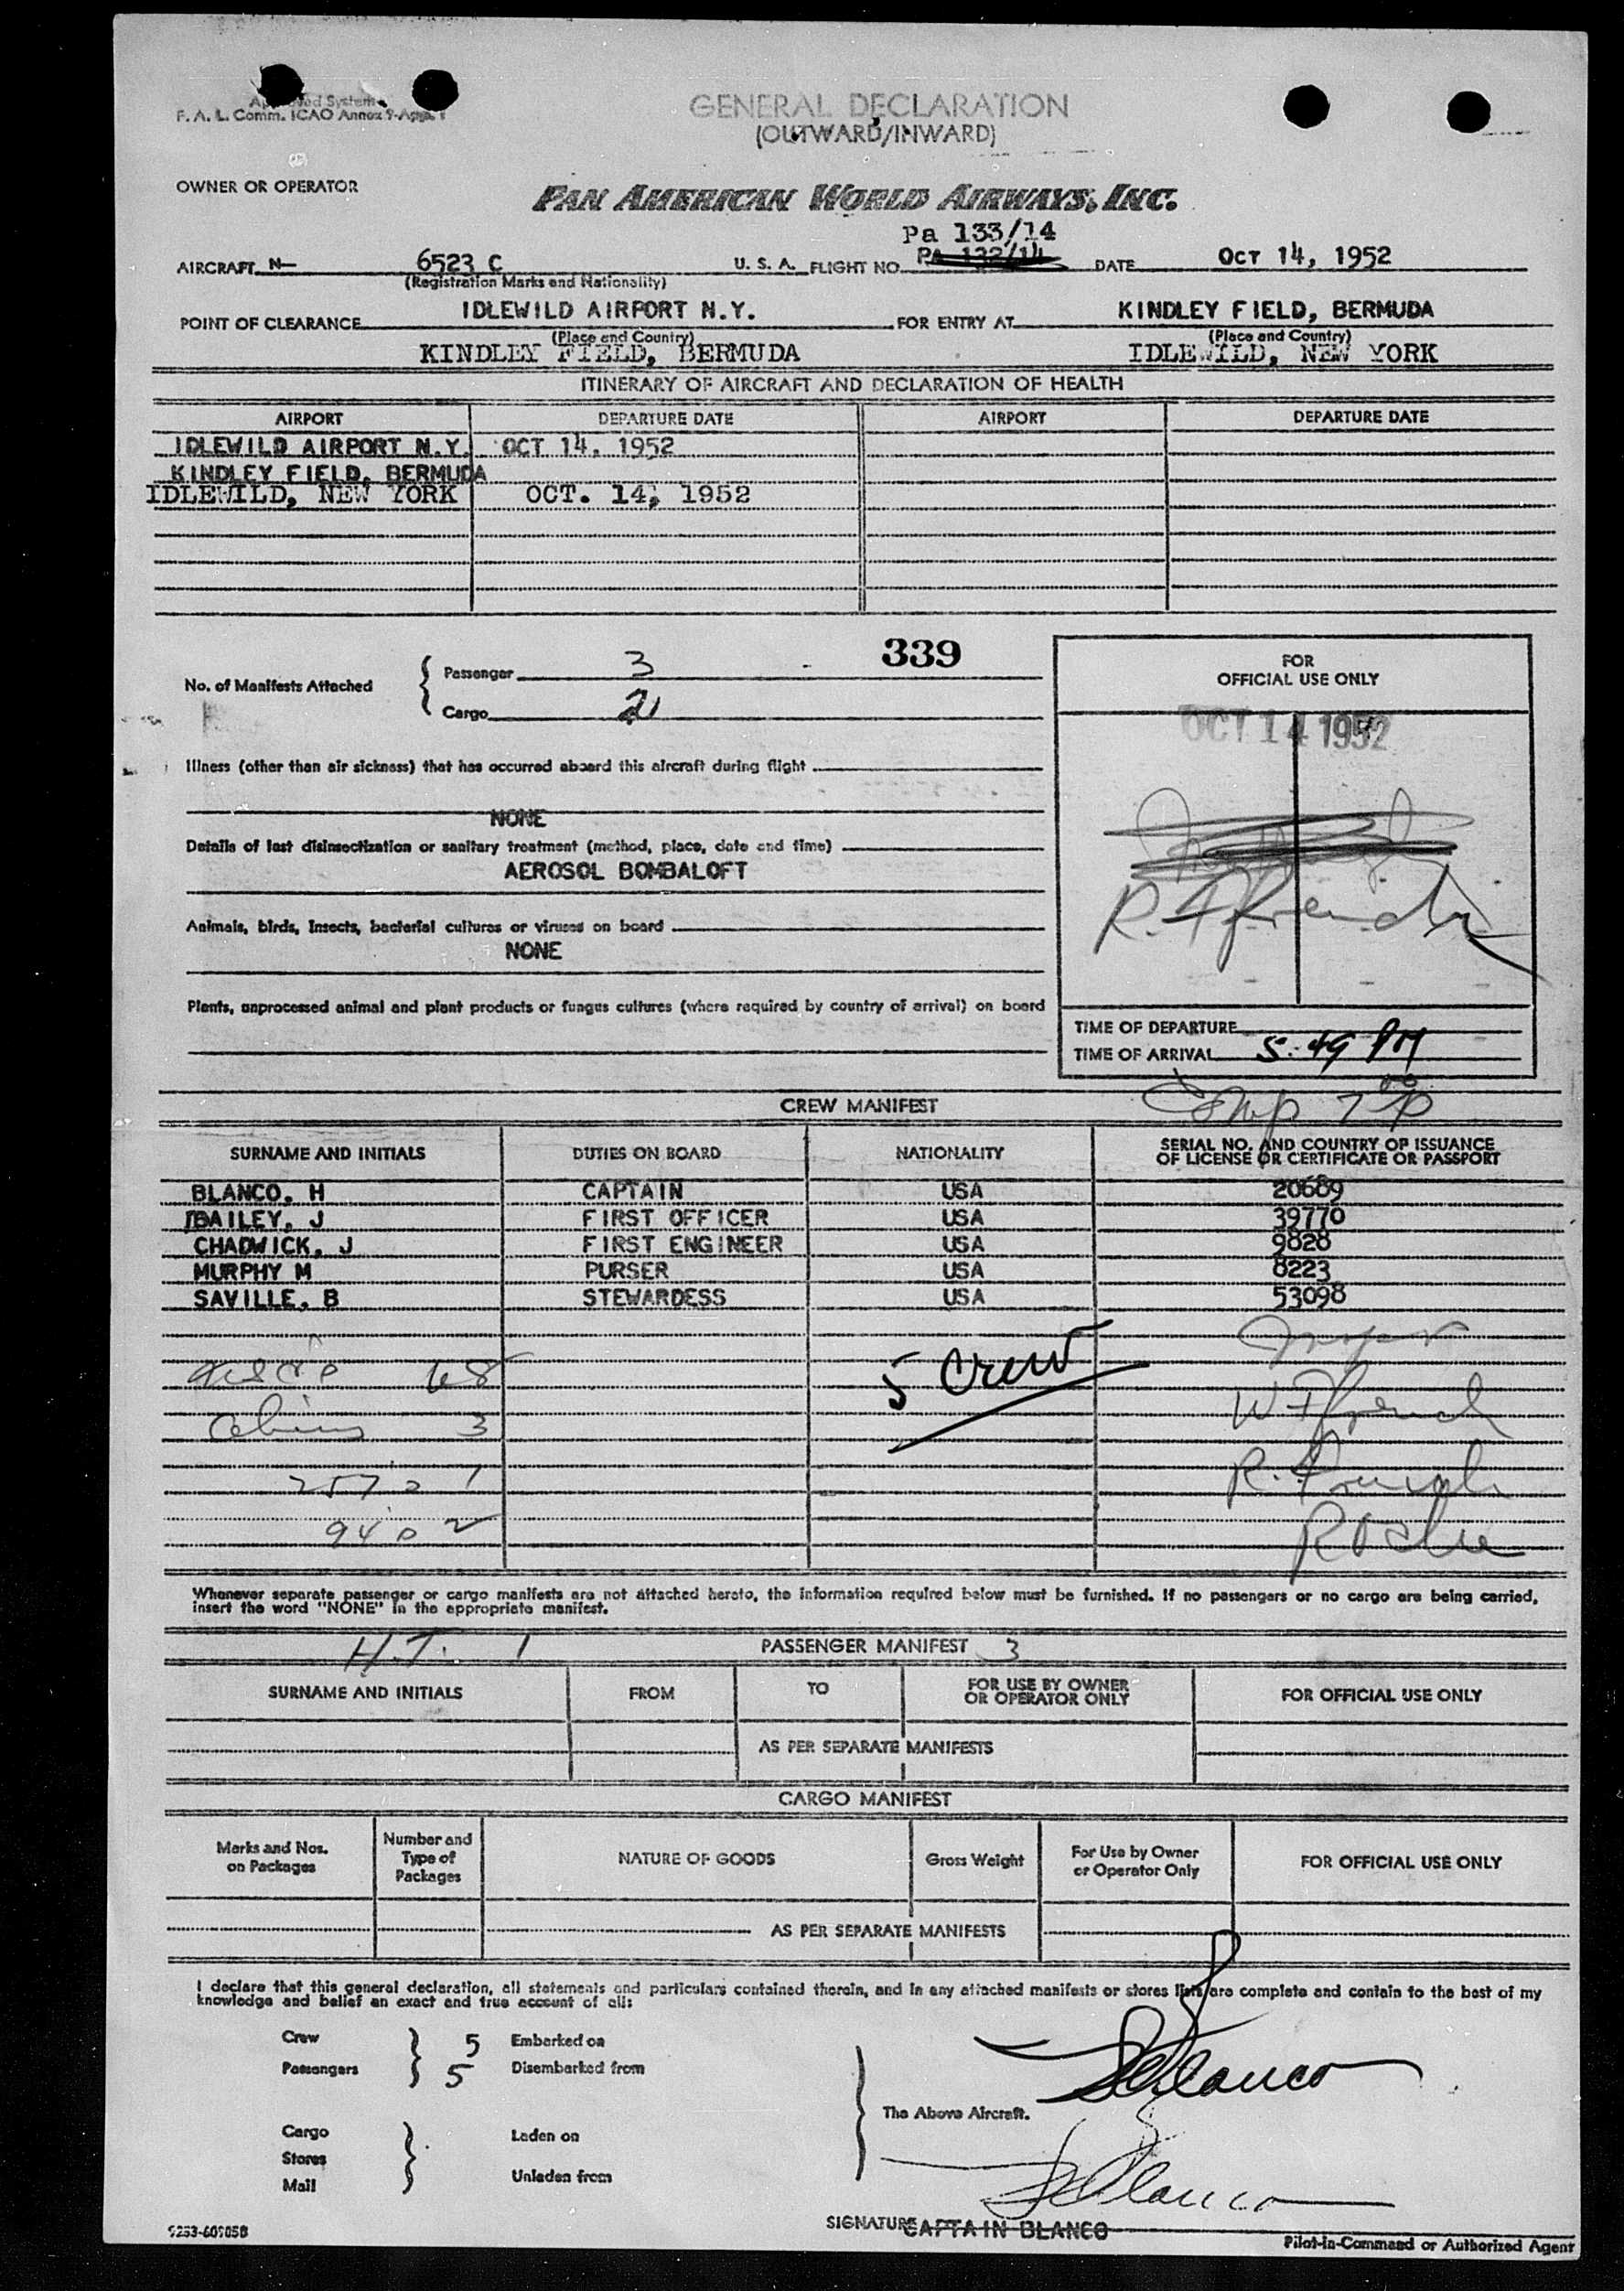 Approved System
F. A. L. Comm. ICAO Annex 9-App. 1
GENERAL DECLARATION
(OUTWARD/INWARD)
OWNER OR OPERATOR
PAN AMERICAN WORLD AIRWAYS, INC.
Pa 133/14
AIRCRAFT N- 6523 C U. S. A. FLIGHT NO. PA 132/14 DATE OCT 14, 1952
(Registration Marks and Nationality)
POINT OF CLEARANCE IDLEWILD AIRPORT N.Y. FOR ENTRY AT KINDLEY FIELD, BERMUDA
(Place and Country) (Place and Country)
KINDLEY FIELD, BERMUDA IDLEWILD, NEW YORK
ITINERARY OF AIRCRAFT AND DECLARATION OF HEALTH
AIRPORT DEPARTURE DATE AIRPORT DEPARTURE DATE
IDLEWILD AIRPORT N.Y. OCT 14, 1952
KINDLEY FIELD, BERMUDA
IDLEWILD, NEW YORK OCT. 14, 1952
339
No. of Manifests Attached
Passenger 3
Cargo
FOR
OFFICIAL USE ONLY
OCT 14 1952
Illness (other than air sickness) that has occurred aboard this aircraft during flight
NONE
Details of last disinsectization or sanitary treatment (method, place, date and time)
AEROSOL BOMBALOFT
Animals, birds, insects, bacterial cultures or viruses on board
NONE
Plants, unprocessed animal and plant products or fungus cultures (where required by country of arrival) on board
TIME OF DEPARTURE
TIME OF ARRIVAL 5:49 PM
Comp 7 00 P
CREW MANIFEST
SURNAME AND INITIALS DUTIES ON BOARD NATIONALITY SERIAL NO. AND COUNTRY OF ISSUANCE
OF LICENSE OR CERTIFICATE OR PASSPORT
BLANCO, H CAPTAIN USA 20689
BAILEY, J FIRST OFFICER USA 39770
CHADWICK, J FIRST ENGINEER USA 9828
MURPHY M PURSER USA 8223
SAVILLE, B STEWARDESS USA 53098
5 Crew
68
Aliens 3
W French
R. French
Roche
Whenever separate passenger or cargo manifests are not attached hereto, the information required below must be furnished. If no passengers or no cargo are being carried,
insert the word "NONE" in the appropriate manifest.
H.T. 1 PASSENGER MANIFEST 3
SURNAME AND INITIALS FROM TO FOR USE BY OWNER
OR OPERATOR ONLY FOR OFFICIAL USE ONLY
AS PER SEPARATE MANIFESTS
CARGO MANIFEST
Marks and Nos.
on Packages
Number and
Type of
Packages
NATURE OF GOODS
Gross Weight
For Use by Owner
or Operator Only
FOR OFFICIAL USE ONLY
AS PER SEPARATE MANIFESTS
I declare that this general declaration, all statements and particulars contained therein, and in any attached manifests or stores lists are complete and contain to the best of my
knowledge and belief an exact and true account of all:
Crew 5 Embarked on
Passengers 5 Disembarked from
The Above Aircraft.
Cargo Laden on
Stores
Mail Unladen from
Blanco
Blanco
SIGNATURE CAPTAIN BLANCO
Pilot-in-Command or Authorized Agent
5253-60905B